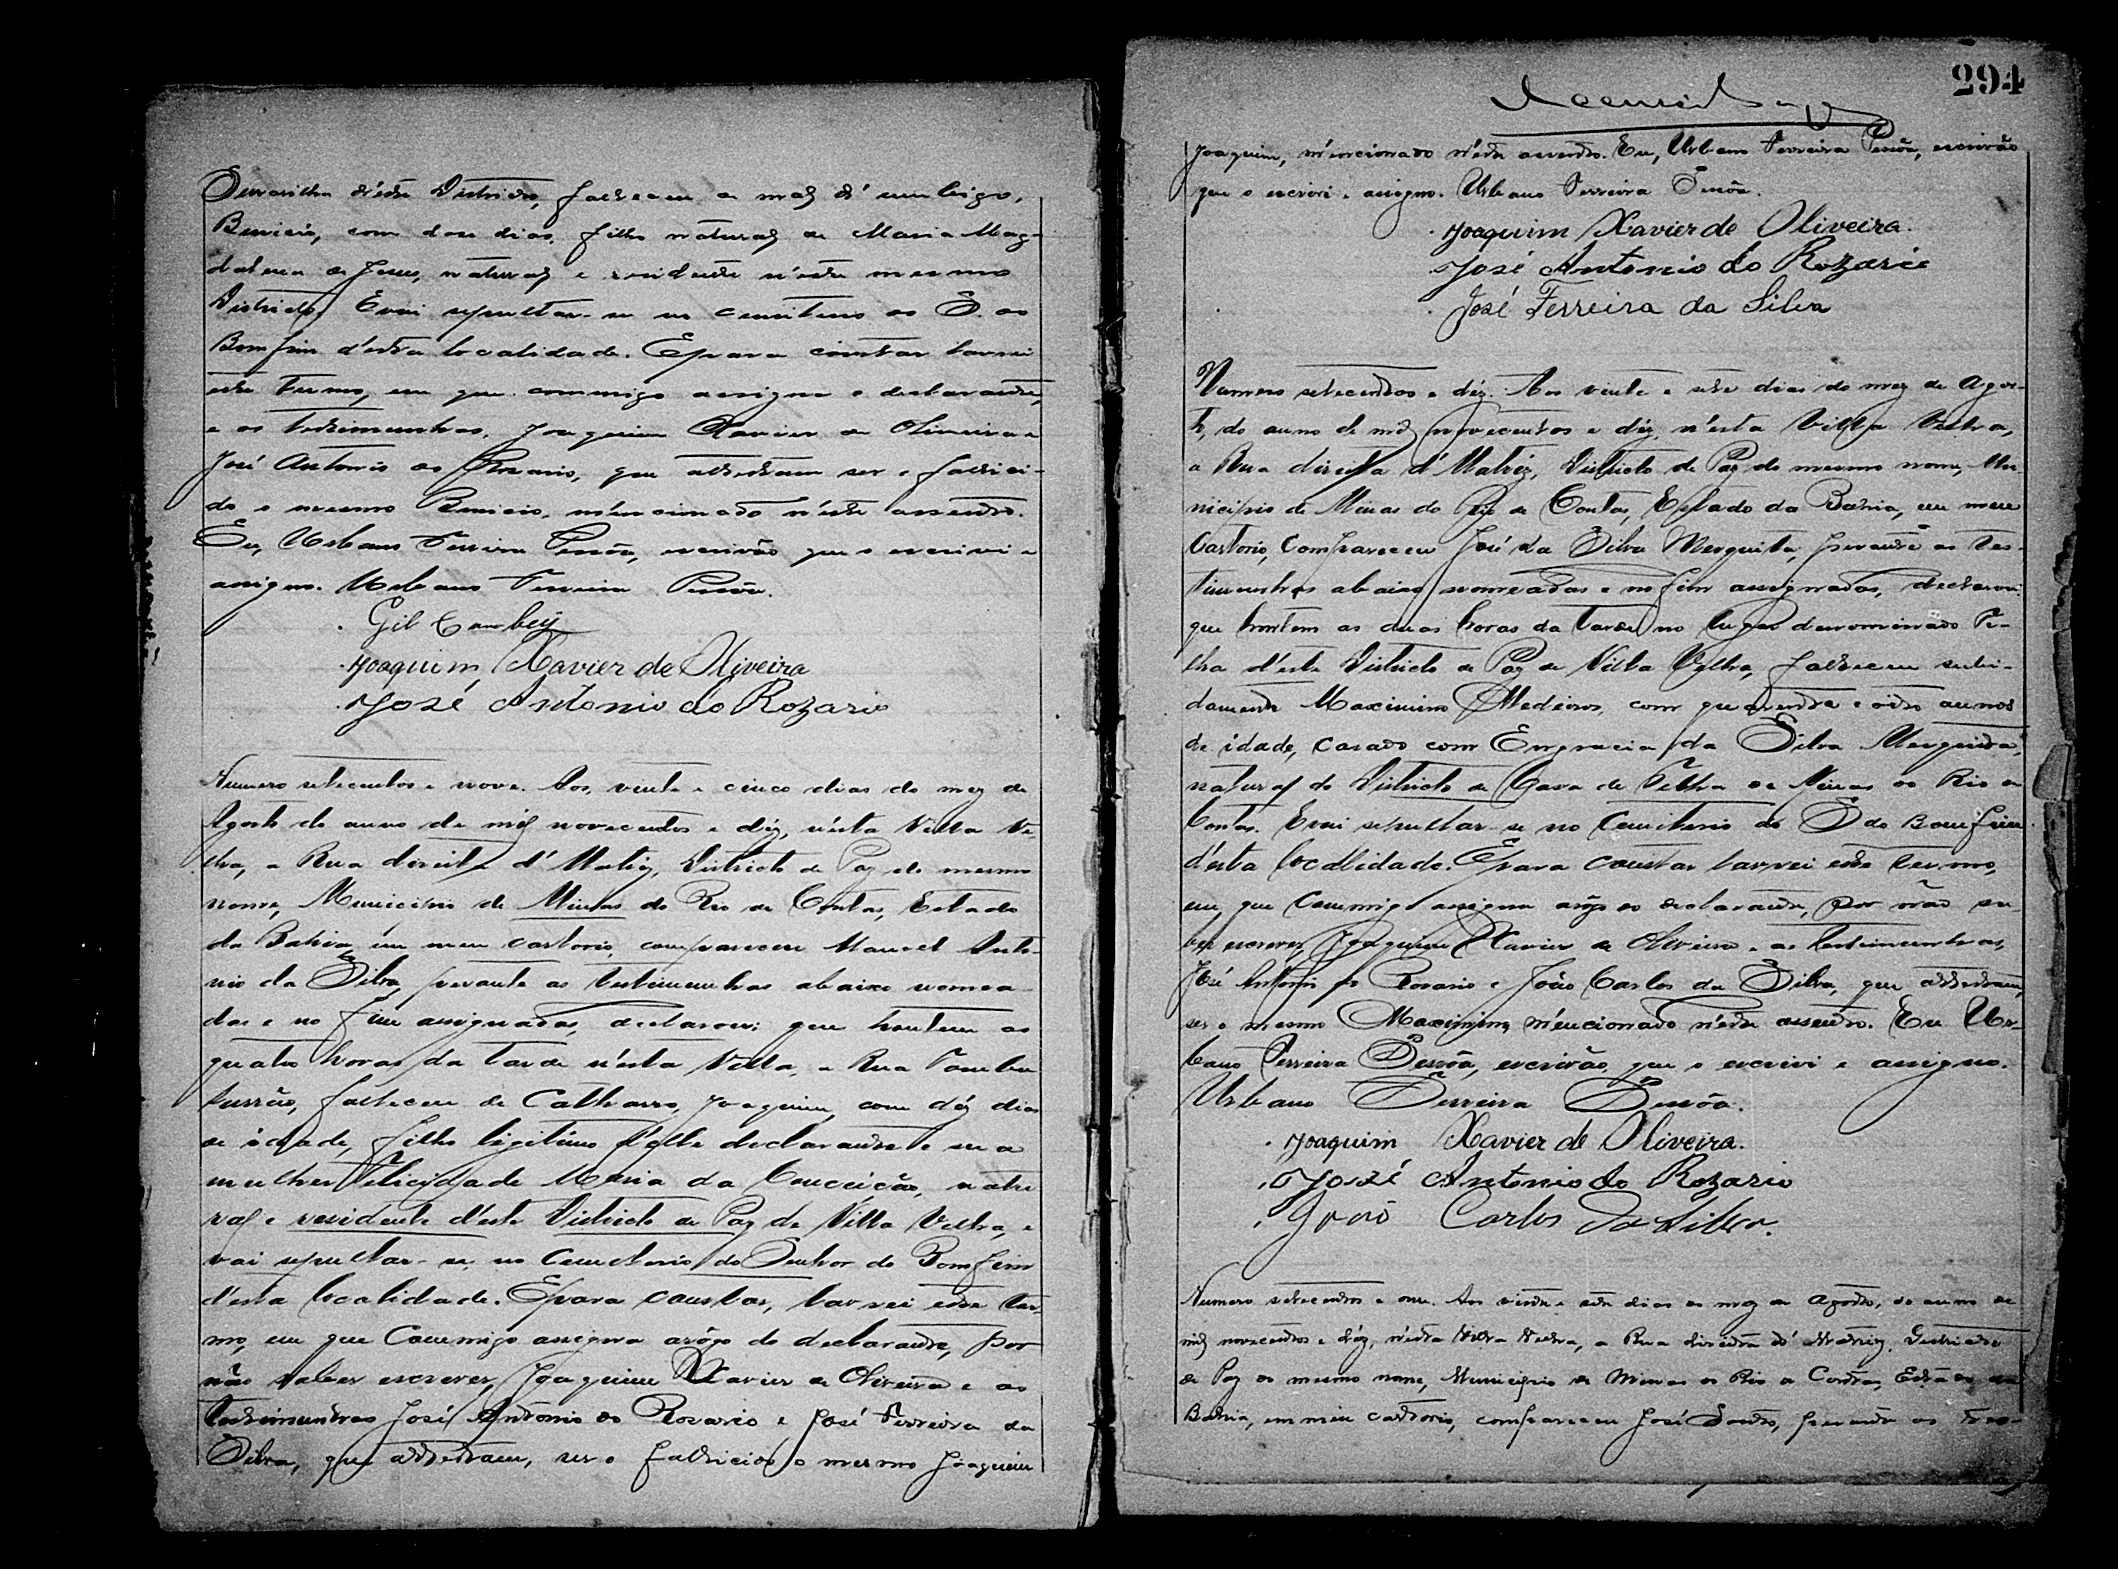 d'este Districto, falleceu de mal d'umbigo,
Benicio, com doze dias, filho natural de Maria Mag-
dalena de Jesus, natural e residente n'este mesmo
Districto. E vai sepultar-se no cemiterio do S. do
Bomfim d'esta localidade. E para constar lavrei
este termo, em que commigo assigna o declarante,
e as testimunhas, Joaquim Xavier de Oliveira e
José Antonio do Rosario, que attestam ser o falleci-
do o mesmo Benicio, mencionado n'este assento.
Eu, Urbano Ferreira Pessôa, escrivão que o escrivi e
assigno. Urbano Ferreira Pessôa.
Gil
Joaquim Xavier de Oliveira
José Antonio do Rozario
Numero setecentos e nove. Aos, vinte e cinco dias do mez de
Agosto do anno de mil novecentos e déz, n'esta Villa Ve-
lha, a Rua direita d'Matriz, Districto de Paz do mesmo
nome, Municipio de Minas do Rio de Contas, Estado
da Bahia, em meu cartorio, compareceu Manoel Anto-
nio da Silva, perante as testimunhas abaixo nomea-
das e no fim assignadas, declarou: que hontem as
quatro horas da tarde n'esta Villa, a Rua
falleceu de Catharro, Joaquim, com déz dias
de idade, filho ligitimo d'elle declarante e sua
mulher Felicidade Maria da Conceicão, natu-
ral e residente d'este Districto de Paz de Villa Velha, e
vai sepultar-se no Cemiterio do Senhor do Bomfim
d'esta localidade. E para constar, lavrei este ter-
mo, em que Commigo assigna arôgo do declarante, por
não saber escrever, Joaquim Xavier de Oliveira e as
testimunhas José Antonio do Rosario e José Ferreira da
Silva, que attestam, ser o fallecido o mesmo Joaquim
294
Joaquim, mencionado n'este assento. Eu, Urbano Ferreira Pessôa, escrivão
que o escrivi e assigno. Urbano Ferreira Pessôa.
Joaquim Xavier de Oliveira.
José Antonio do Rozario
José Ferreira da Silva
Numero setecentos e déz. Aos vinte e sete dias do mez de Agos-
to, do anno de mil novecentos e déz, n'esta Villa Velha,
a Rua direita d'Matriz, Districto de Paz do mesmo nome, Mu-
nicipio de Minas do Rio de Contas, Estado da Bahia, em meu
Cartorio, Compareceu José da Silva Mesquita, perante as tes-
timunhas abaixo nomeadas e no fim assignadas, declarou:
que hontem as duas horas da tarde no lugar denominado
d'este Districto de Paz de Villa Velha, falleceu subi-
damente Maximino Medeiros, com quarenta e oito annos
de idade, casado com Engracia da Silva Mesquita,
natural do Districto de Casa de Telha de Minas do Rio de
Contas. E vai sepultar-se no Cemiterio do S. do Bomfim
d'esta localidade. E para constar lavrei este termo,
em que Commigo assigna arôgo do declarante, por não sa-
ber escrever, Joaquim Xavier de Oliveira e as testimunhas,
José Antonio do Rosario e João Carlos da Silva, que attestam,
ser o mesmo Maximino, mencionado n'este assento. Eu Ur-
bano Ferreira Pessôa, escrivão que o escrivi e assigno.
Urbano Ferreira Pessôa.
Joaquim Xavier de Oliveira.
José Antonio do Rozario
João Carlos da Silva.
Numero setecentos e onze. Aos vinte e sete dias do mez de Agosto, do anno de
mil novecentos e déz, n'esta Villa Velha, a Rua direita d'Matriz, Districto
de Paz do mesmo nome, Municipio de Minas do Rio de Contas, Estado da
Bahia, em meu cartorio, compareceu José Santos, perante as tes-